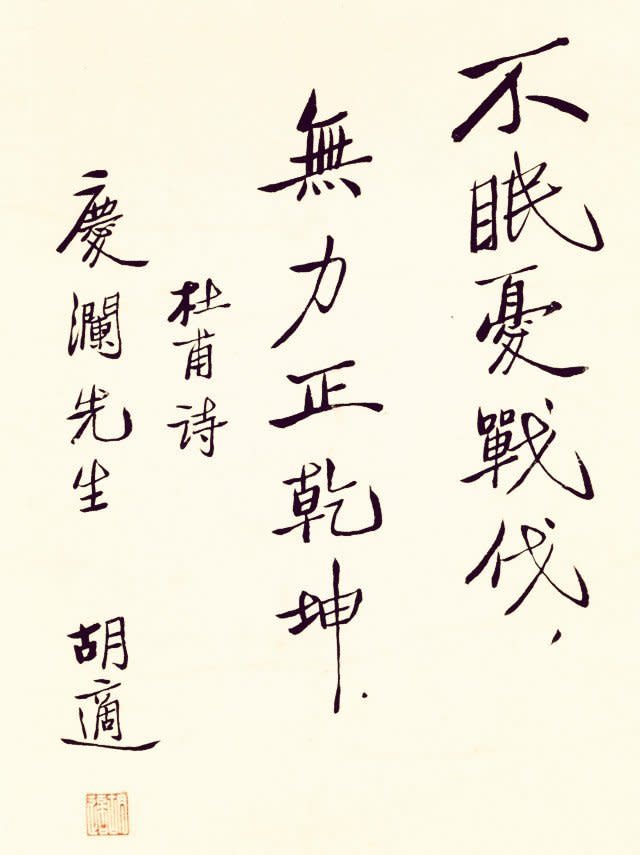 不眠憂戰伐，
無力正乾坤．
杜甫诗
慶瀾先生　胡適